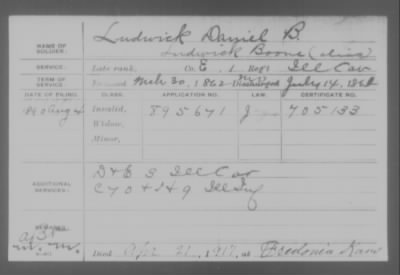 Ludwick Daniel B.
NAME OF SOLDIER:
Ludwick Boone (alias)
SERVICE: Late rank, Co. E, 1 Reg't Ill Cav
TERM OF SERVICE: Enlisted Mch 30, 1862 Discharged July 14, 186
DATE OF FILING. CLASS. APPLICATION NO. LAW. CERTIFICATE NO.
1890 Aug 4 Invalid, 895671 J 705133
Widow,
Minor,
ADDITIONAL SERVICES: D & E 5 Ill Cav
C 70 & H 9 Ill Inf
REMARKS:
Died Apr 21, 1917, at Fredonia Kans